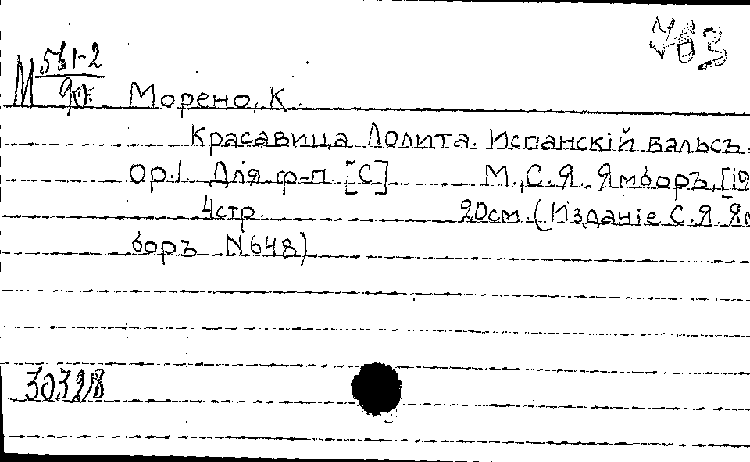 763
М 561-2
90
Морено, К.
Красавица Лолита. Испанскій вальсъ.
Op.1. Для ф-п. [С] М., С.Я. Ямборъ, [19
4стр. 20см. (Изданіе С.Я. Ям
боръ N648)
303218